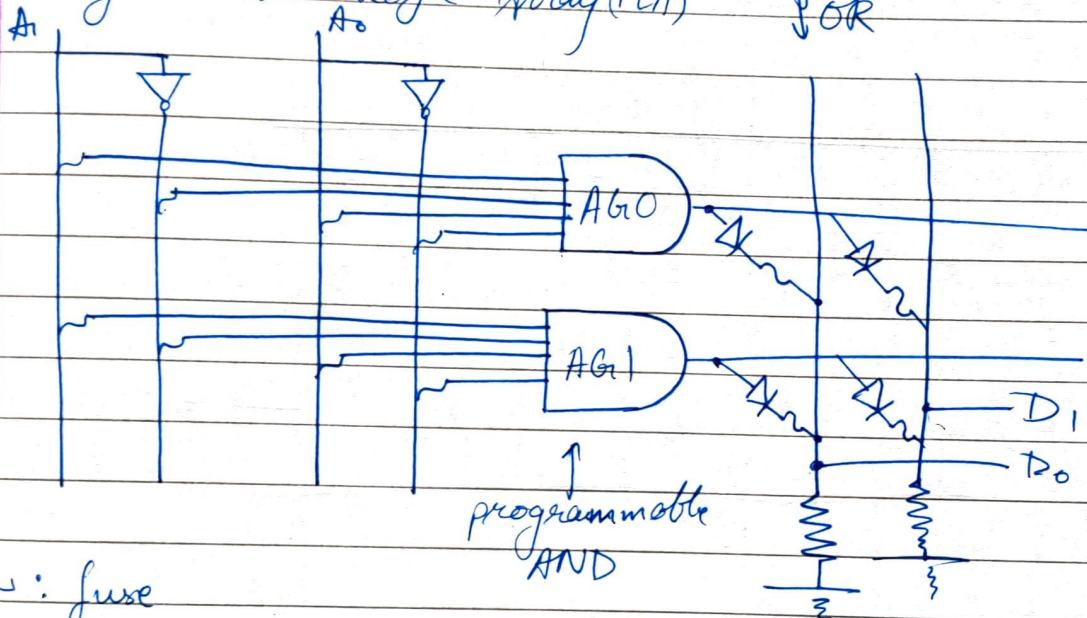 Array (PLA)
OR
A1
A0
AG0
AG1
D1
D0
programmable
AND
: fuse